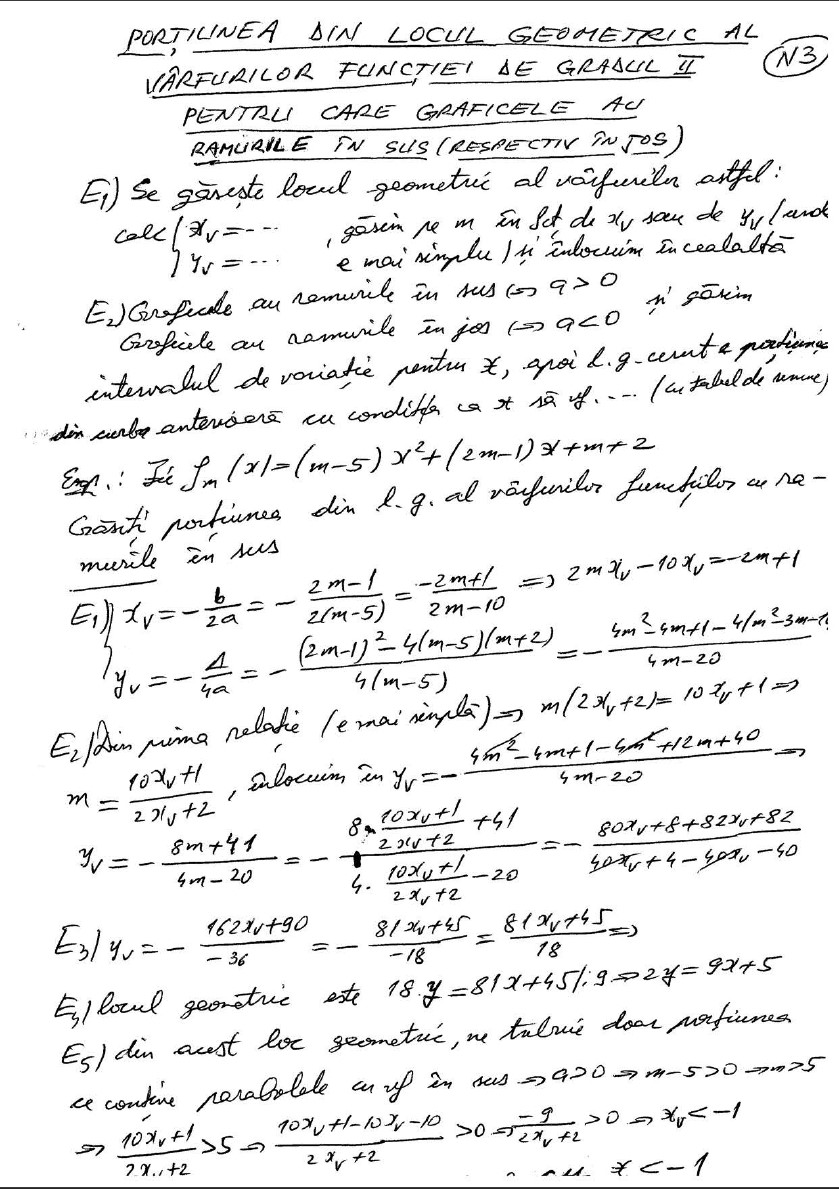 PORȚIUNEA DIN LOCUL GEOMETRIC AL
VÂRFURILOR FUNCȚIEI DE GRADUL II
N3
PENTRU CARE GRAFICELE AU
RAMURILE ÎN SUS (RESPECTIV ÎN JOS)
E1) Se găsește locul geometric al vârfurilor astfel:
calc { xv = --- , găsim pe m în fct de xv sau de yv (unde
yv = --- e mai simplu) și înlocuim în cealaltă
E2) Graficele au ramurile în sus ⇔ a > 0
Graficele au ramurile în jos ⇔ a < 0 și găsim
intervalul de variație pentru x, apoi l.g. cerut e porțiunea
din curba anterioară cu condiția ca x să vf. .... (cu tabel de semne)
Exp.: Fie fm(x) = (m-5)x² + (2m-1)x + m + 2
Găsiți porțiunea din l.g. al vârfurilor funcțiilor cu ra-
murile în sus
E1) { xv = - b/2a = - (2m-1)/(2(m-5)) = (-2m+1)/(2m-10) ⇒ 2mxv - 10xv = -2m+1
yv = - Δ/4a = - ((2m-1)² - 4(m-5)(m+2))/(4(m-5)) = - (4m²-4m+1-4(m²-3m-10)/(4m-20)
E2) Din prima relație (e mai simplă) ⇒ m(2xv+2) = 10xv+1 ⇒
m = (10xv+1)/(2xv+2), înlocuim în yv = - (4m²-4m+1-4m²+12m+40)/(4m-20) ⇒
yv = - (8m+41)/(4m-20) = - (8·(10xv+1)/(2xv+2) + 41)/(4·(10xv+1)/(2xv+2) - 20) = - (80xv+8+82xv+82)/(40xv+4-40xv-40)
E3) yv = - (162xv+90)/(-36) = - (81xv+45)/(-18) = (81xv+45)/18 ⇒
E4) locul geometric este 18·y = 81x+45 /:9 ⇒ 2y = 9x+5
E5) din acest loc geometric, ne trebuie doar porțiunea
ce conține parabolele cu vf în sus ⇒ a>0 ⇒ m-5>0 ⇒ m>5
⇒ (10xv+1)/(2xv+2) > 5 ⇒ (10xv+1-10xv-10)/(2xv+2) > 0 ⇒ -9/(2xv+2) > 0 ⇒ xv < -1
x < -1